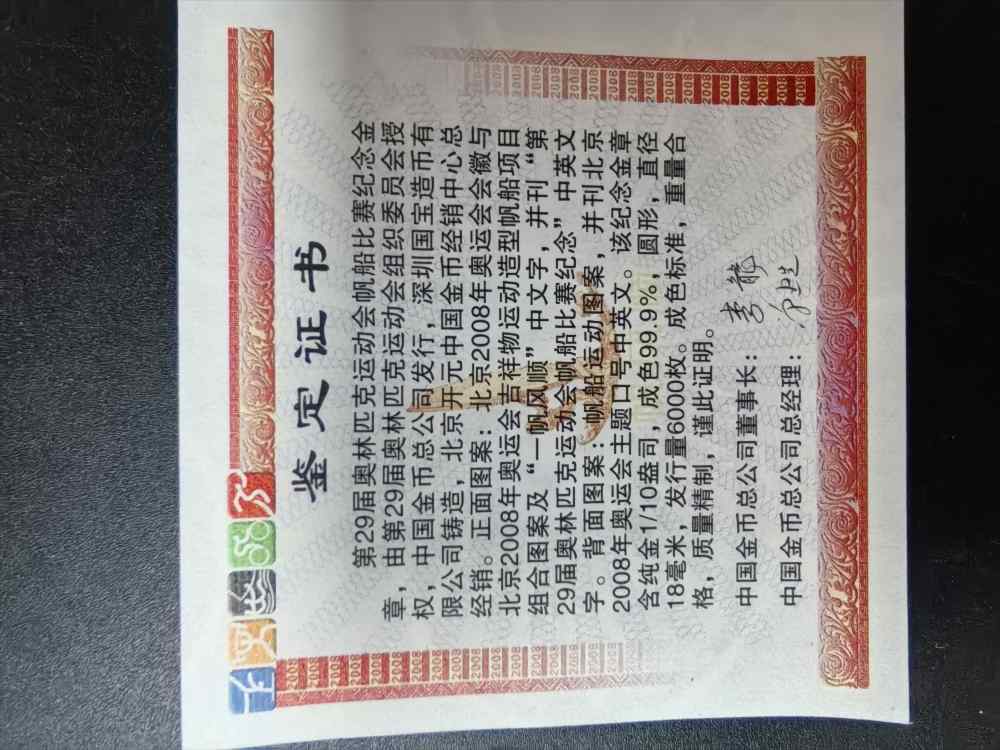 鉴定证书
第29届奥林匹克运动会帆船比赛纪念金
章，由第29届奥林匹克运动会组织委员会授
权，中国金币总公司发行，深圳国宝造币有
限公司铸造，北京开元中国金币经销中心总
经销。正面图案：北京2008年奥运会会徽与
北京2008年奥运会吉祥物运动造型帆船项目
组合图案及“一帆风顺”中文字，并刊“第
29届奥林匹克运动会帆船比赛纪念”中英文
字。背面图案：帆船运动图案，并刊北京
2008年奥运会主题口号中英文。该纪念金章
含纯金1/10盎司，成色99.9%，圆形，直径
18毫米，发行量6000枚。成色标准，重量合
格，质量精制，谨此证明。
中国金币总公司董事长：
中国金币总公司总经理：